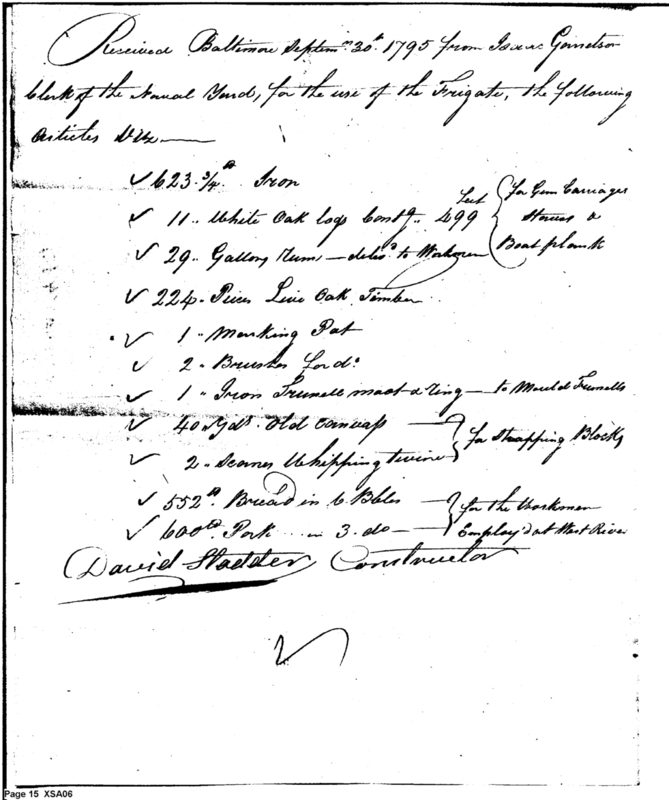 Received Baltimore Septem.r 30.th 1795 from Isaac Garretson
Clerk of the Naval Yard, for the use of the Frigate, the following
Articles Viz
✓ 623 3/4 lb Iron
✓ 11 " White Oak logs Contg. 499 feet { for Gun Carriages Staves & Boat plank
✓ 29 " Gallons Rum — delivd. to Workmen
✓ 224 " Pieces Live Oak Timber
✓ 1 " Marking Pot
✓ 2 " Brushes for do
✓ 1 " Iron Trunell & ring — to Mould Trunells
✓ 40 Yds. Old Canvass
✓ 2 " Whipping twine } for Strapping Blocks
✓ 552 lb Bread in 6 Bbles } for the Workmen
✓ 600 lb Pork in 3 do } Employ'd at West River
David Stodder Constructor
Page 15 XSA06